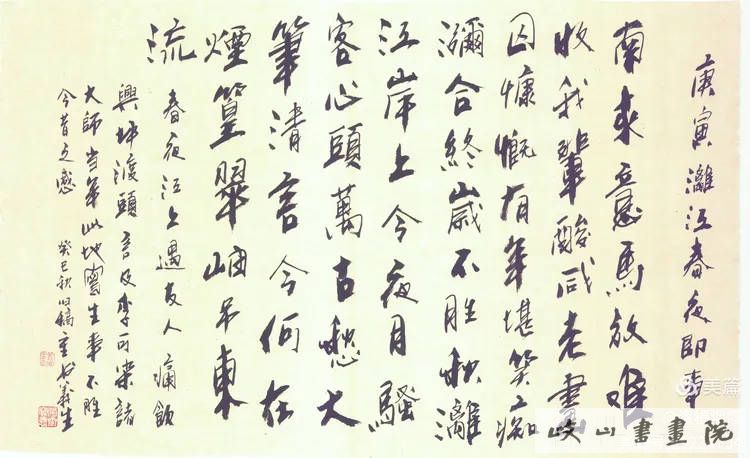 庚寅灕江春夜即事
南來意馬放難
收我輩酸咸老畫
囚慷慨有年堪笑痴
瀰合終歲不胜秋灕
江岸上今夜月騷
客心頭萬古愁大
筆清言今何在
煙篁翠岫吊東
流 春夜江上遇友人痛飲
興坪渡頭言及李可染諸
大師当年此地寫生事不胜
今昔之感 癸巳秋旧稿重书義生
美篇
岐山書畫院